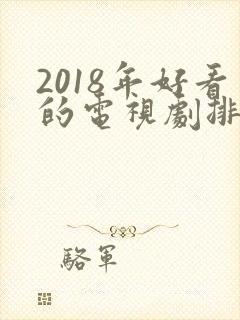 2018年好看
的電視劇排
駱軍